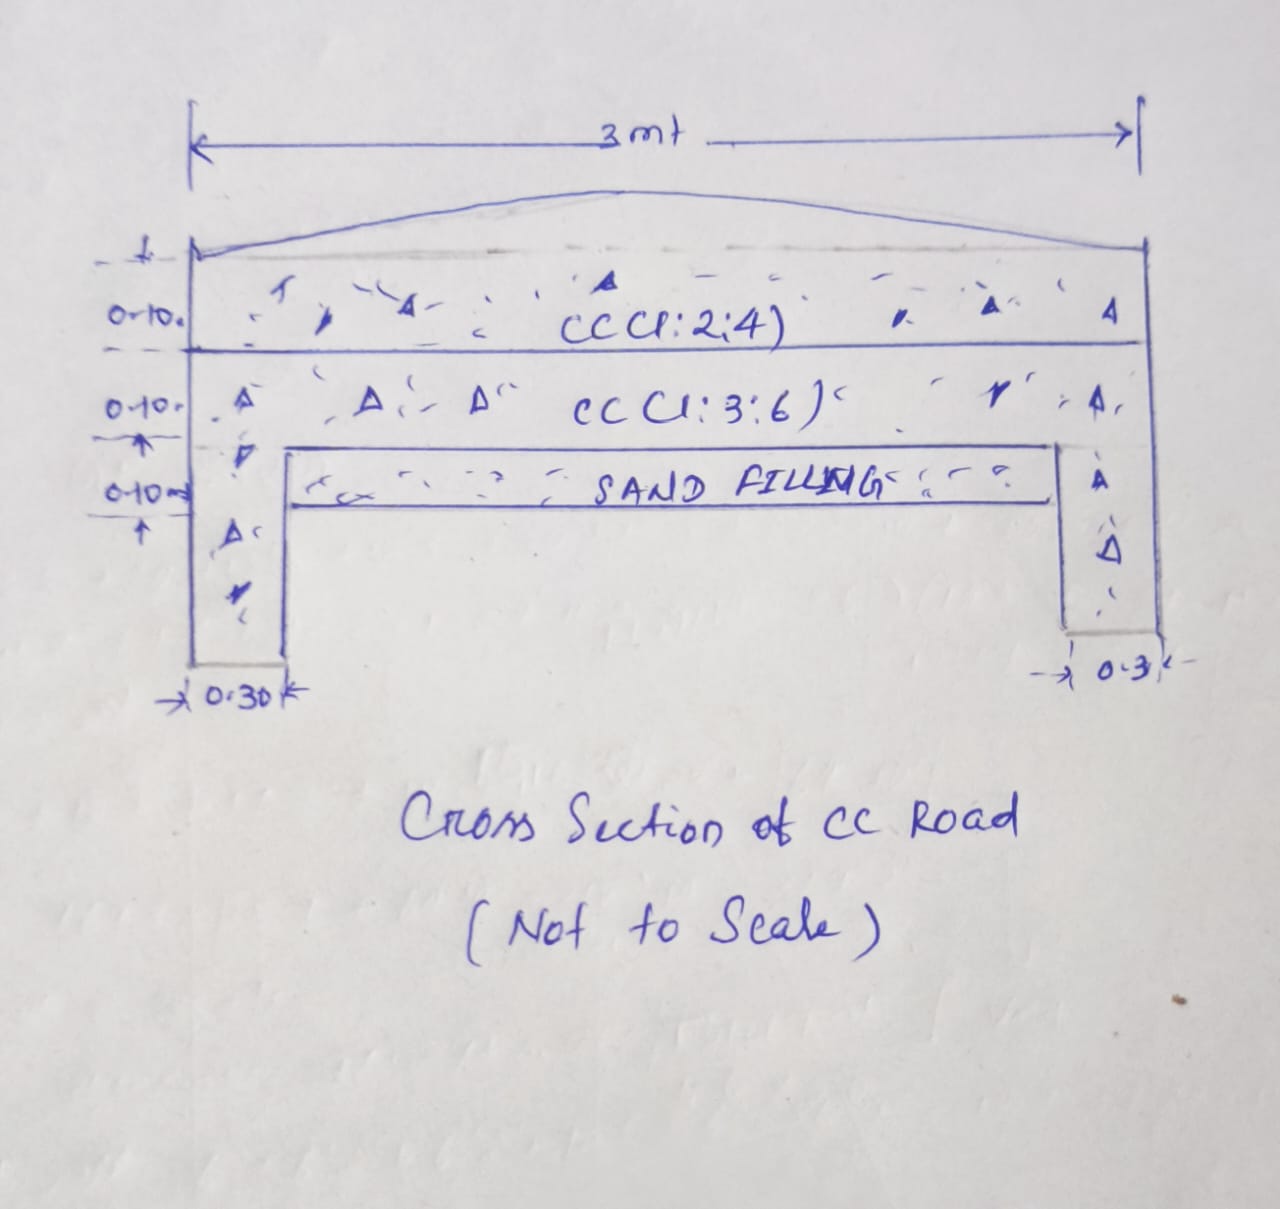 3 mt
0.10.
CC (1:2:4)
0.10.
CC (1:3:6)
0.10m
SAND FILLING
0.30
0.3
Cross Section of CC Road
(Not to Scale)